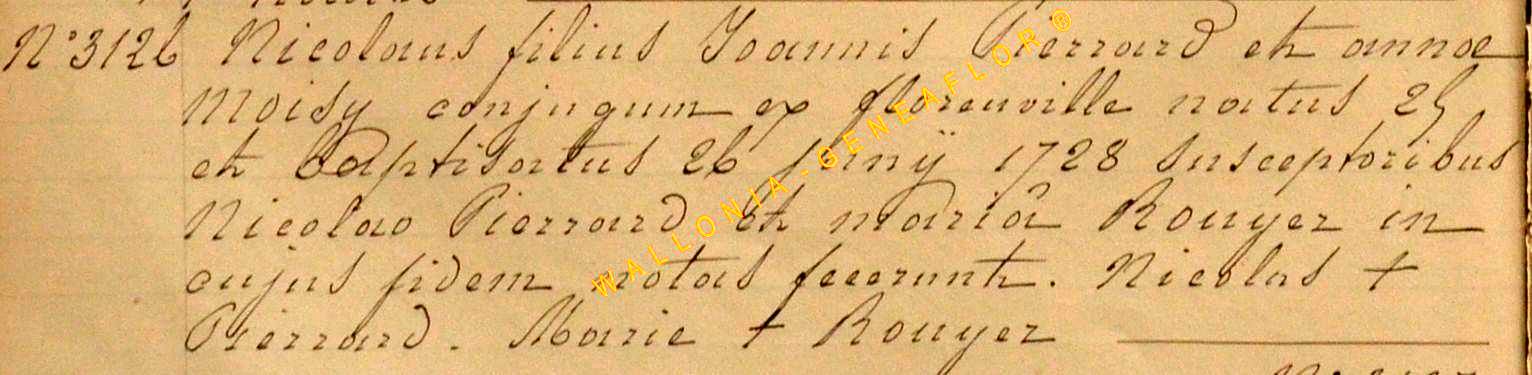 N° 3126 Nicolaus filius Joannis Pierrard et annae
Moisy conjugum ex florenville natus 25
et baptisatus 26 junÿ 1728 Susceptoribus
Nicolao Pierrard Et mariâ Rouyer in
cujus fidem notas fecerunt. Nicolas +
Pierrard. Marie + Rouyer
WALLONIA-GENEAFLOR®